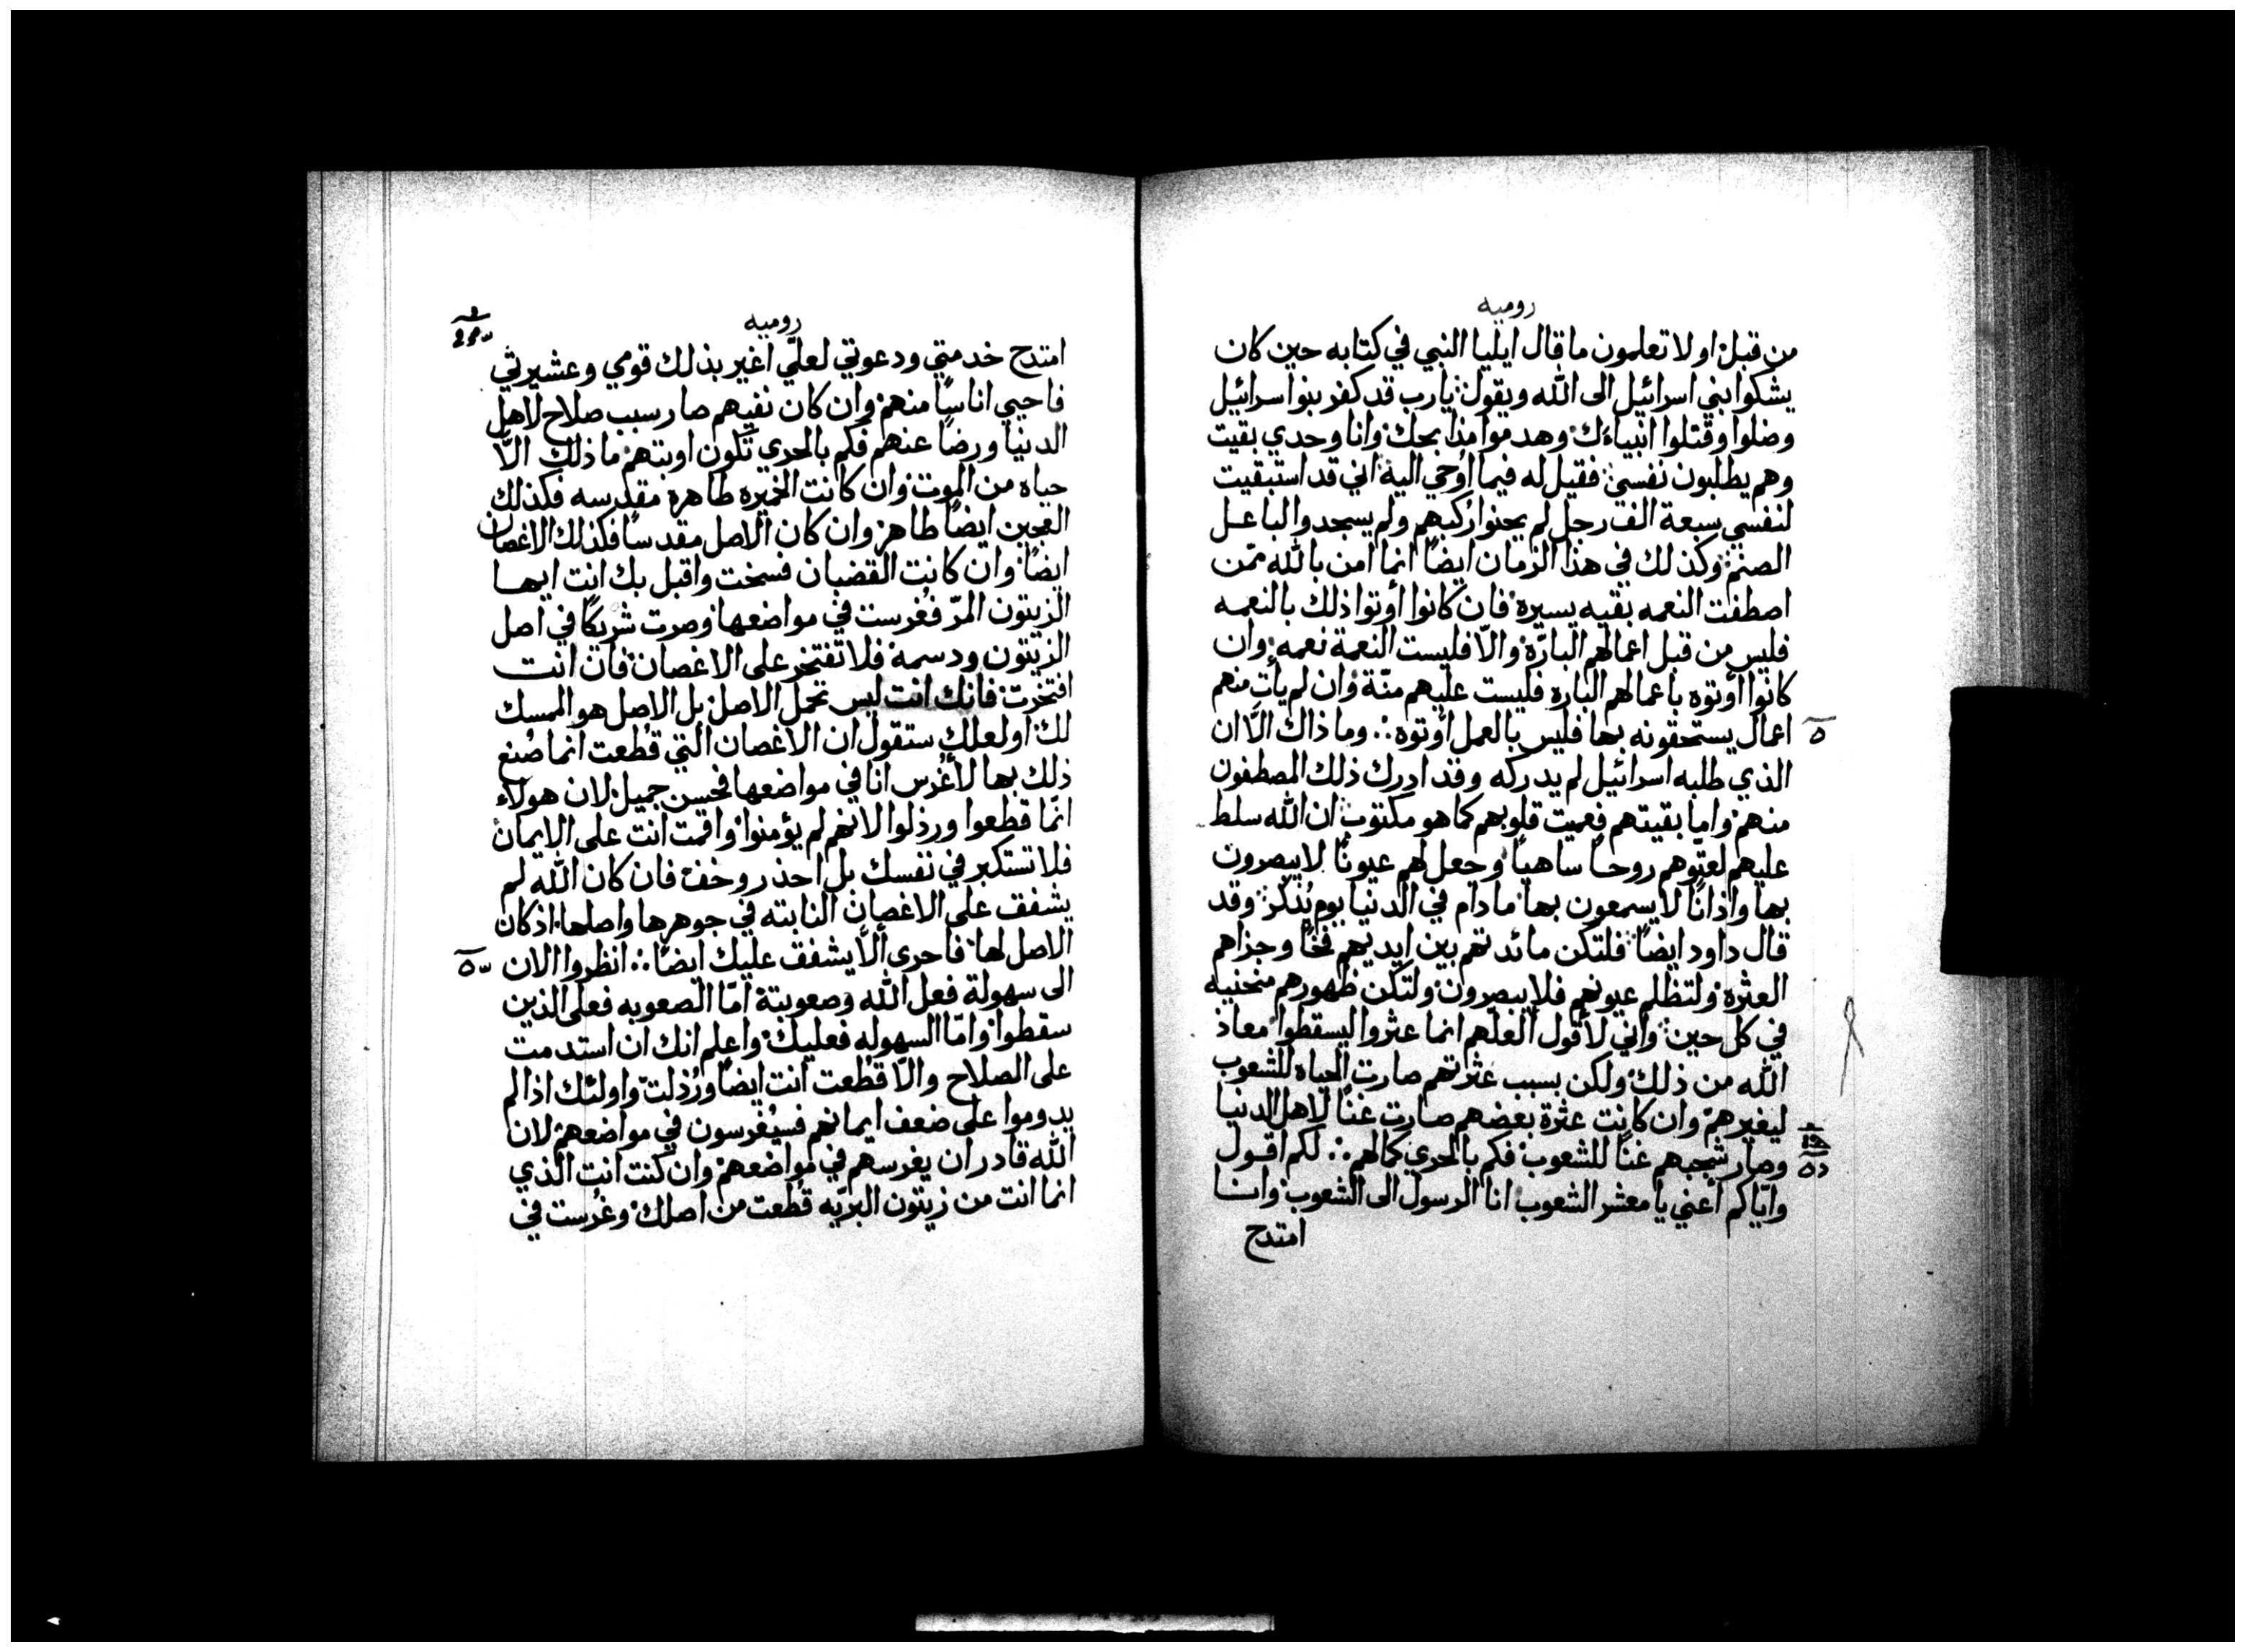 روميه
من قبل اولا تعلمون ما قال ايليا النبي في كتابه حين كان
يشكوا بني اسرائيل الى الله ويقول يارب قد كفر بنوا سرائيل
وضلوا وقتلوا انبياءك وهدموا مذابحك وانا وحدي بقيت
وهم يطلبون نفسي فقيل له فيما اُوحي اليه اني قد استبقيت
لنفسي سبعة الف رجل لم يحنوا ركبهم ولم يسجدوا لباعل
الصنم وكذلك في هذا الزمان ايضاً انما امن بالله ممّن
اصطفت النعمه بقيه يسيرة فان كانوا أوتوا ذلك بالنعمه
فليس من قبل اعمالهم البارّة والّا فليست النعمة نعمه وان
كانوا أوتوه باعمالهم البارة فليست عليهم منّة وان لم يأت منهم
اعمال يستحقونه بها فليس بالعمل أوتوه وما ذاك الّا ان
الذي طلبه اسرائيل لم يدركه وقد ادرك ذلك المصطفون
منهم واما بقيتهم فعميت قلوبهم كما هو مكتوب ان الله سلط
عليهم لعتّوهم روحاً ساهياً وجعل لهم عيونًا لا يبصرون
بها واذانًا لا يسمعون بها ما دام في الدنيا يوم يُذكر وقد
قال داود ايضاً فلتكن مائدتهم بين ايديهم فخًا وجزاهم
العثرة ولتظلم عيونهم فلا يبصرون ولتكن ظهورهم منحنيه
في كل حين واني لأقول العلّهم انما عثروا ليسقطوا معاذ
الله من ذلك ولكن بسبب عثرتهم صارت الحياه للشعوب
ليغيرهم وان كانت عثرة بعضهم صارت غنًا لاهل الدنيا
وصار شجبهم غنًا للشعوب فكم بالحري كمالهم لكم اقول
وايّاكم اعني يا معشر الشعوب انا الرسول الى الشعوب وانا
امتدح
روميه
امتدح خدمتي ودعوتي لعلّي اغير بذلك قومي وعشيرتي
فاحيي اناسًا منهم وان كان نفيهم صار سبب صلاح لاهل
الدنيا ورضًا عنهم فكم بالحري تكون اوبتهم ما ذلك الّا
حياه من الموت وان كانت الخميره طاهرة مقدسه فكذلك
العجين ايضاً طاهر وان كان الاصل مقدسًا فكذلك الاغصان
ايضًا وان كانت القضبان فسخت واقبل بك انت ايها
الزيتون المرّ فغُرست في مواضعها وصرت شريكًا في اصل
الزيتون ودسمه فلا تفتخر على الاغصان فان انت
افتخرت فانك انت ليس تحمل الاصل بل الاصل هو الممسك
لك اولعلك ستقول ان الاغصان التي قُطعت انما صُنع
ذلك بها لأغُرس انا في مواضعها فحسن جميل لان هولاء
انّما قطعوا ورذلوا لانهم لم يؤمنوا واقمت انت على الايمان
فلا تستكبر في نفسك بل احذر وخف فان كان الله لم
يشفق على الاغصان النابته في جوهرها واصلها اذ كان
الاصل لها فاحرى ألّا يشفق عليك ايضًا انظروا الان
الى سهولة فعل الله وصعوبتة امّا الصعوبه فعلى الذين
سقطوا وامّا السهوله فعليك واعلم انك ان استدمت
على الصلاح والّا قُطعت انت ايضاً ورُذلت واولئك اذا لم
يدوموا على ضعف ايمانهم فسيُغرسون في مواضعهم لان
الله قادر ان يغرسهم في مواضعهم وان كنت انت الذي
انما انت من زيتون البريّه قُطعت من اصلك وغُرست في